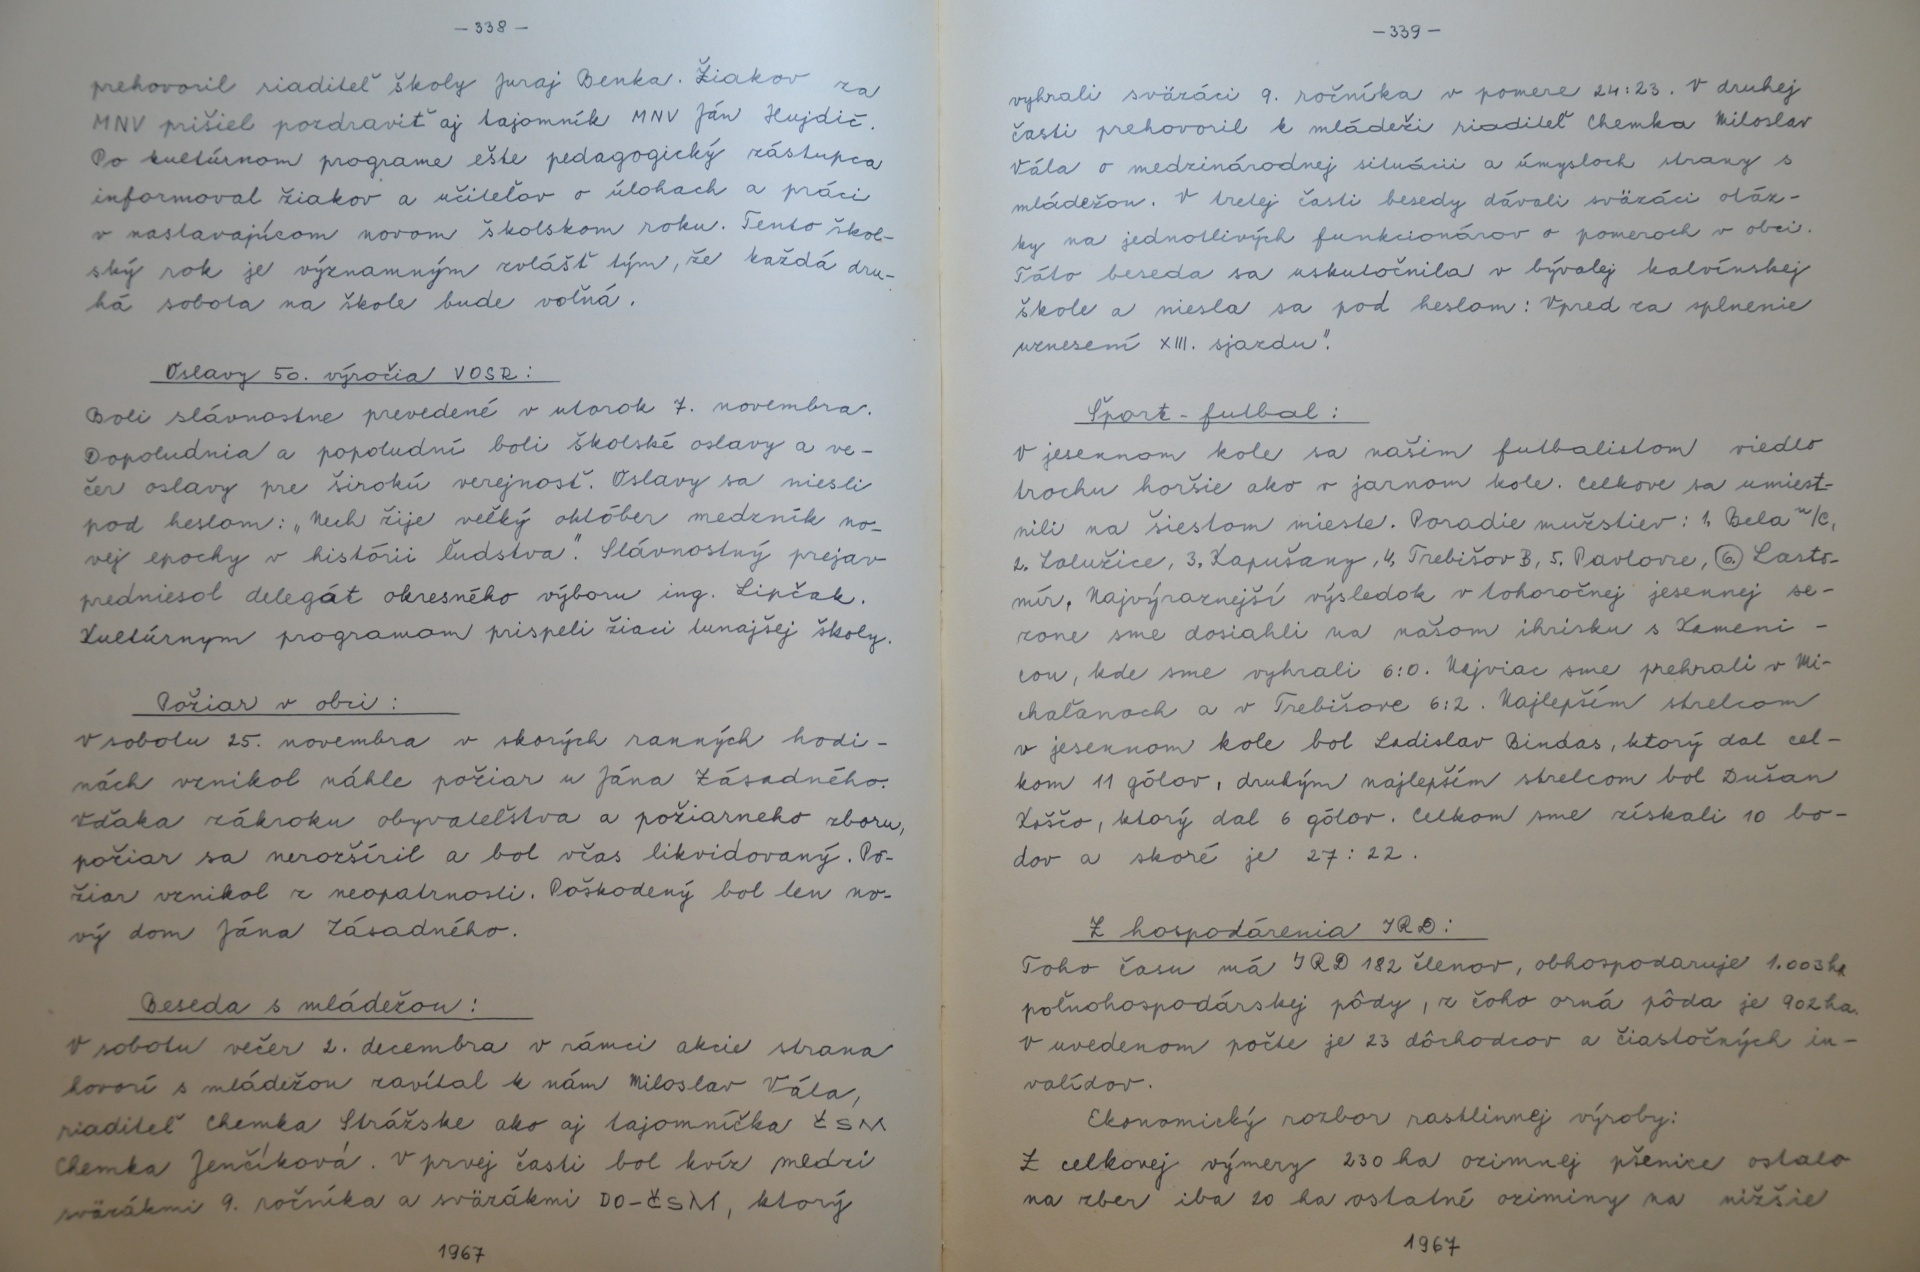 – 338 –
prehovoril riaditeľ školy Juraj Benka. Žiakov za
MNV prišiel pozdraviť aj tajomník MNV Ján Hujdič.
Po kultúrnom programe ešte pedagogický zástupca
informoval žiakov a učiteľov o úlohach a práci
v nastavajúcom novom školskom roku. Tento škol-
ský rok je významným zvlášť tým, že každá dru-
há sobota na škole bude voľná.
Oslavy 50. výročia VOSR:
Boli slávnostne prevedené v utorok 7. novembra.
Dopoludnia a popoludní boli školské oslavy a ve-
čer oslavy pre širokú verejnosť. Oslavy sa niesli
pod heslom: „Nech žije veľký október medzník no-
vej epochy v histórii ľudstva". Slávnostný prejav
predniesol delegát okresného výboru ing. Lipčak.
Kultúrnym programom prispeli žiaci tunajšej školy.
Požiar v obci:
V sobotu 25. novembra v skorých ranných hodi-
nách vznikol náhle požiar u Jána Zásadného.
Vďaka zákroku obyvateľstva a požiarneho zboru,
požiar sa nerozšíril a bol včas likvidovaný. Po-
žiar vznikol z neopatrnosti. Poškodený bol len no-
vý dom Jána Zásadného.
Beseda s mládežou:
V sobotu večer 2. decembra v rámci akcie strana
hovorí s mládežou zavítal k nám Miloslav Vála,
riaditeľ Chemka Strážske ako aj tajomníčka ČSM
Chemka Jenčíková. V prvej časti bol kvíz medzi
sväzákmi 9. ročníka a sväzákmi DO-ČSM, ktorý
1967
– 339 –
vyhrali sväzáci 9. ročníka v pomere 24:23. V druhej
časti prehovoril k mládeži riaditeľ Chemka Miloslav
Vála o medzinárodnej situácii a úmysloch strany s
mládežou. V tretej časti besedy dávali sväzáci otáz-
ky na jednotlivých funkcionárov o pomeroch v obci.
Táto beseda sa uskutočnila v bývalej kalvínskej
škole a niesla sa pod heslom: Vpred za splnenie
uznesení XIII. sjazdu".
Šport - futbal:
V jesennom kole sa našim futbalistom viedlo
trochu horšie ako v jarnom kole. Celkove sa umiest-
nili na šiestom mieste. Poradie mužstiev: 1. Bela n/C,
2. Zalužice, 3. Kapušany, 4. Trebišov B, 5. Pavlovce, 6. Lasto-
mír. Najvýraznejší výsledok v tohoročnej jesennej se-
zone sme dosiahli na našom ihrisku s Kameni-
cou, kde sme vyhrali 6:0. Najviac sme prehrali v Mi-
chaľanoch a v Trebišove 6:2. Najlepším strelcom
v jesennom kole bol Ladislav Bindas, ktorý dal cel-
kom 11 gólov, druhým najlepším strelcom bol Dušan
Koščo, ktorý dal 6 gólov. Celkom sme získali 10 bo-
dov a skoré je 27:22.
Z hospodárenia JRD:
Toho času má JRD 182 členov, obhospodaruje 1.003 ha
poľnohospodárskej pôdy, z čoho orná pôda je 902 ha.
V uvedenom počte je 23 dôchodcov a čiastočných in-
valídov.
Ekonomický rozbor rastlinnej výroby:
Z celkovej výmery 230 ha ozimnej pšenice ostalo
na zber iba 20 ha ostatné oziminy na nižšie
1967